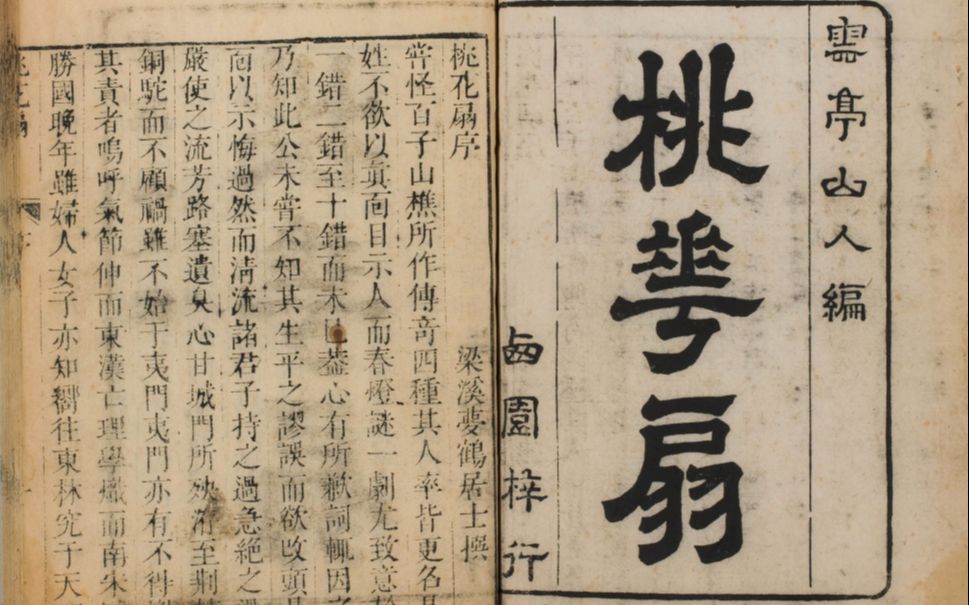 雲亭山人編
桃華扇
西園梓行
桃花扇序
梁溪夢鶴居士撰
嘗怪百子山樵所作傳竒四種其人率皆更名
姓不欲以眞面目示人而春燈謎一劇尤致意
一錯二錯至十錯而未已葢心有所歉詞輒因之
乃知此公未嘗不知其生平之謬誤而欲改頭
面以示悔過然而清流諸君子持之過急絕之
嚴使之流芳路塞遺臭心甘城門所殃洊至荆
銅駝而不顧禍雖不始于夷門夷門亦有不得
其責者嗚呼氣節伸而東漢亡理學熾而南宋
勝國晚年雖婦人女子亦知嚮往東林究于天
桃花扇